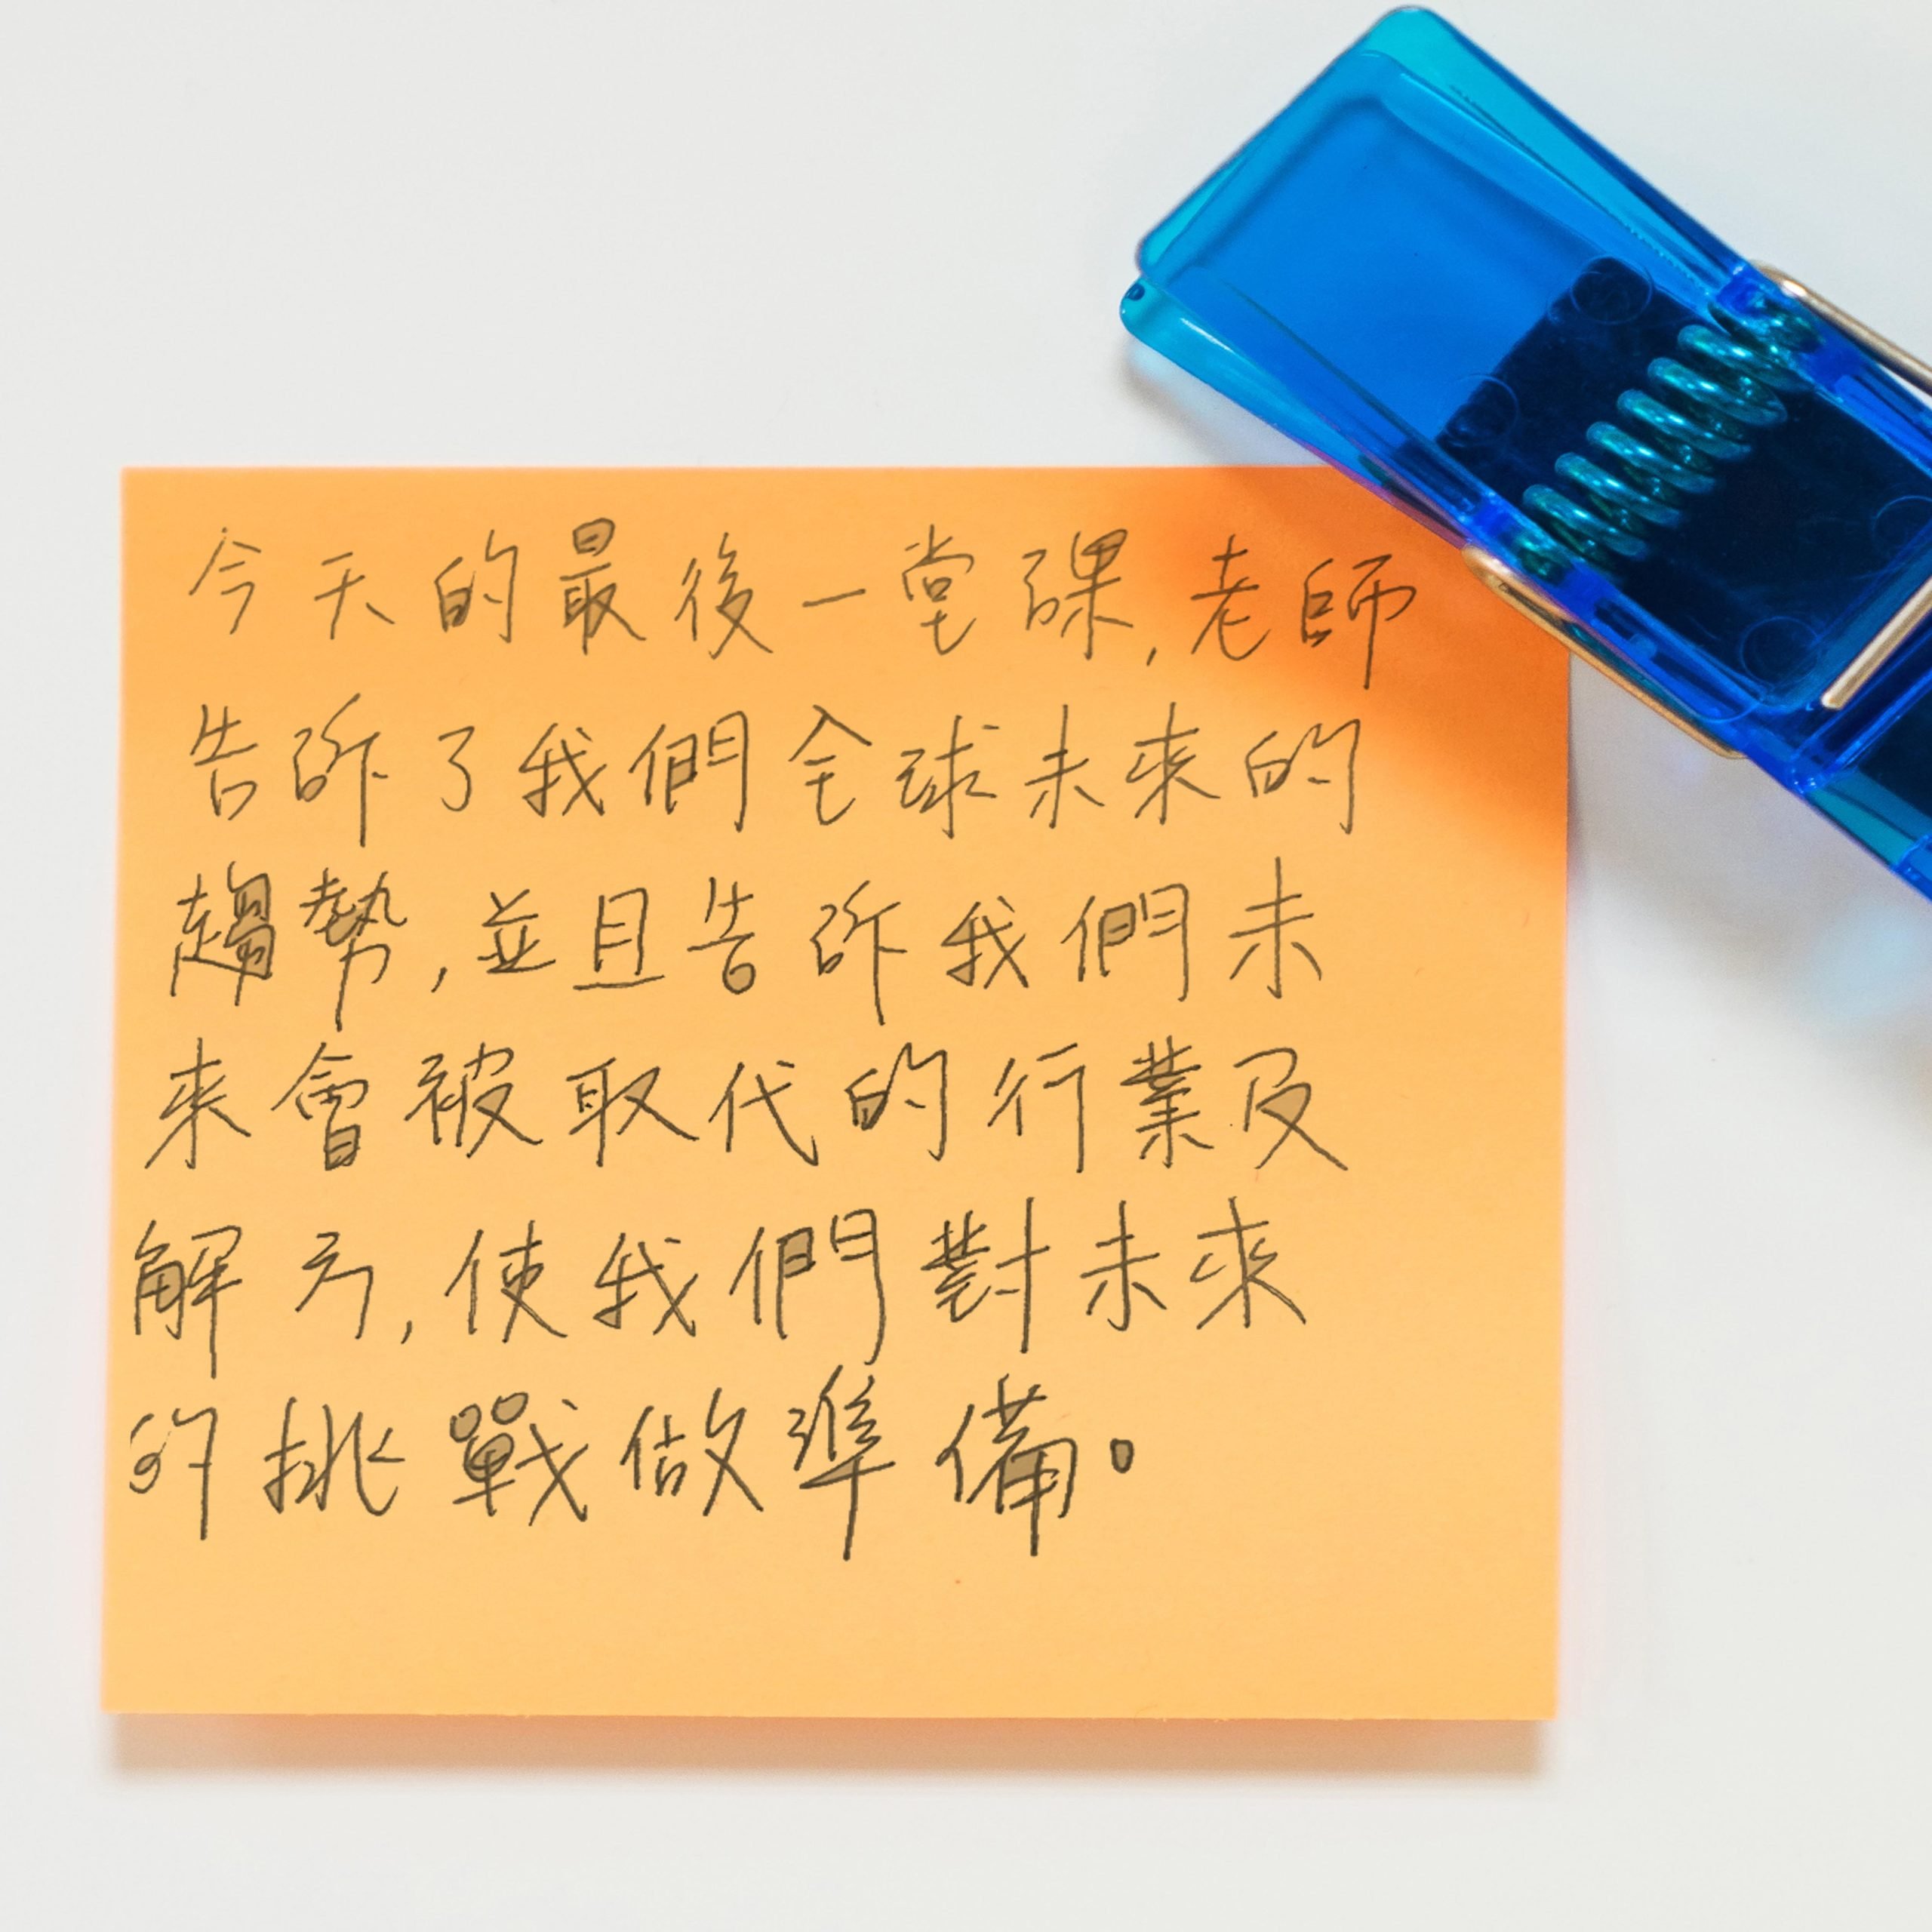 今天的最後一堂課,老師
告訴了我們全球未來的
趨勢,並且告訴我們未
來會被取代的行業及
解方,使我們對未來
的挑戰做準備。